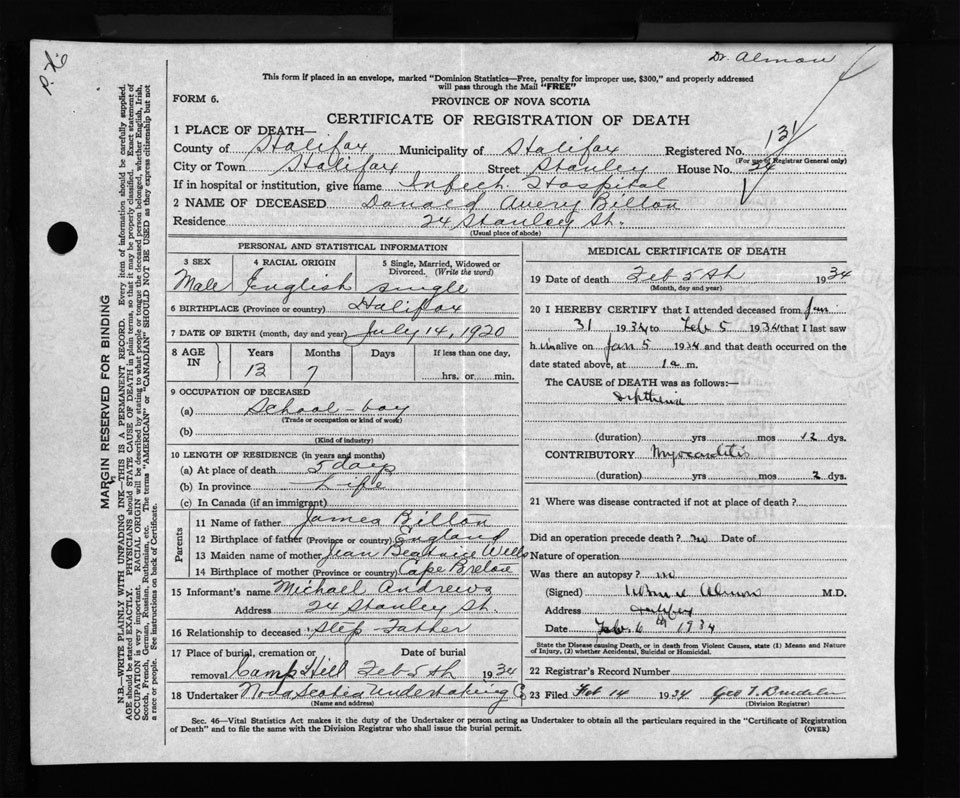 Dr. Almon
This form if placed in an envelope, marked "Dominion Statistics—Free, penalty for improper use, $300," and properly addressed
will pass through the Mail "FREE"
FORM 6.
PROVINCE OF NOVA SCOTIA
CERTIFICATE OF REGISTRATION OF DEATH
131
1 PLACE OF DEATH—
County of Halifax Municipality of Halifax Registered No.
(For use of Registrar General only)
City or Town Halifax Street Stanley House No. 24
If in hospital or institution, give name Infech. Hospital
2 NAME OF DECEASED Donald Avery Bilton
Residence 24 Stanley St.
(Usual place of abode)
PERSONAL AND STATISTICAL INFORMATION
3 SEX 4 RACIAL ORIGIN 5 Single, Married, Widowed or
Divorced. (Write the word)
Male English single
6 BIRTHPLACE (Province or country) Halifax
7 DATE OF BIRTH (month, day and year) July 14, 1920
8 AGE IN Years Months Days If less than one day,
13 7 hrs. or min.
9 OCCUPATION OF DECEASED
(a) School-boy
(Trade or occupation or kind of work)
(b)
(Kind of industry)
10 LENGTH OF RESIDENCE (in years and months)
(a) At place of death 5 days
(b) In province Life
(c) In Canada (if an immigrant)
Parents
11 Name of father James Bilton
12 Birthplace of father (Province or country) England
13 Maiden name of mother Jean Beatrice Wells
14 Birthplace of mother (Province or country) Cape Breton
15 Informant's name Michael Andrews
Address 24 Stanley St.
16 Relationship to deceased Step-Father
17 Place of burial, cremation or Date of burial
removal Camp Hill Feb 5th 1934
18 Undertaker Nova Scotia Undertaking Co
(Name and address)
MEDICAL CERTIFICATE OF DEATH
19 Date of death Feb 5th 1934
(Month, day and year)
20 I HEREBY CERTIFY that I attended deceased from Jan
31 1934 to Feb 5 1934 that I last saw
him alive on Jan 5 1934 and that death occurred on the
date stated above, at 1 a m.
The CAUSE of DEATH was as follows:—
Diptheria
(duration) yrs mos 12 dys.
CONTRIBUTORY Myocarditis
(duration) yrs mos 2 dys.
21 Where was disease contracted if not at place of death?
Did an operation precede death? no Date of
Nature of operation
Was there an autopsy? no
(Signed) Almon M.D.
Address Halifax
Date Feb 6th 1934
State the Disease causing Death, or in death from Violent Causes, state (1) Means and Nature
of Injury, (2) whether Accidental, Suicidal or Homicidal.
22 Registrar's Record Number
23 Filed Feb 14 1934 Geo T.
(Division Registrar)
Sec. 46—Vital Statistics Act makes it the duty of the Undertaker or person acting as Undertaker to obtain all the particulars required in the "Certificate of Registration
of Death" and to file the same with the Division Registrar who shall issue the burial permit. (OVER)
MARGIN RESERVED FOR BINDING
N.B.—WRITE PLAINLY WITH UNFADING INK—THIS IS A PERMANENT RECORD. Every item of information should be carefully supplied.
AGE should be stated EXACTLY. PHYSICIANS should STATE CAUSE OF DEATH in plain terms, so that it may be properly classified. Exact statement of
OCCUPATION is very important. RACIAL ORIGIN will be described by stating to what people or tongue the deceased person belonged, whether English, Irish,
Scotch, French, German, Russian, Ruthenian, etc. The terms "AMERICAN" or "CANADIAN" SHOULD NOT BE USED as they express citizenship but not
a race or people. See instructions on back of Certificate.